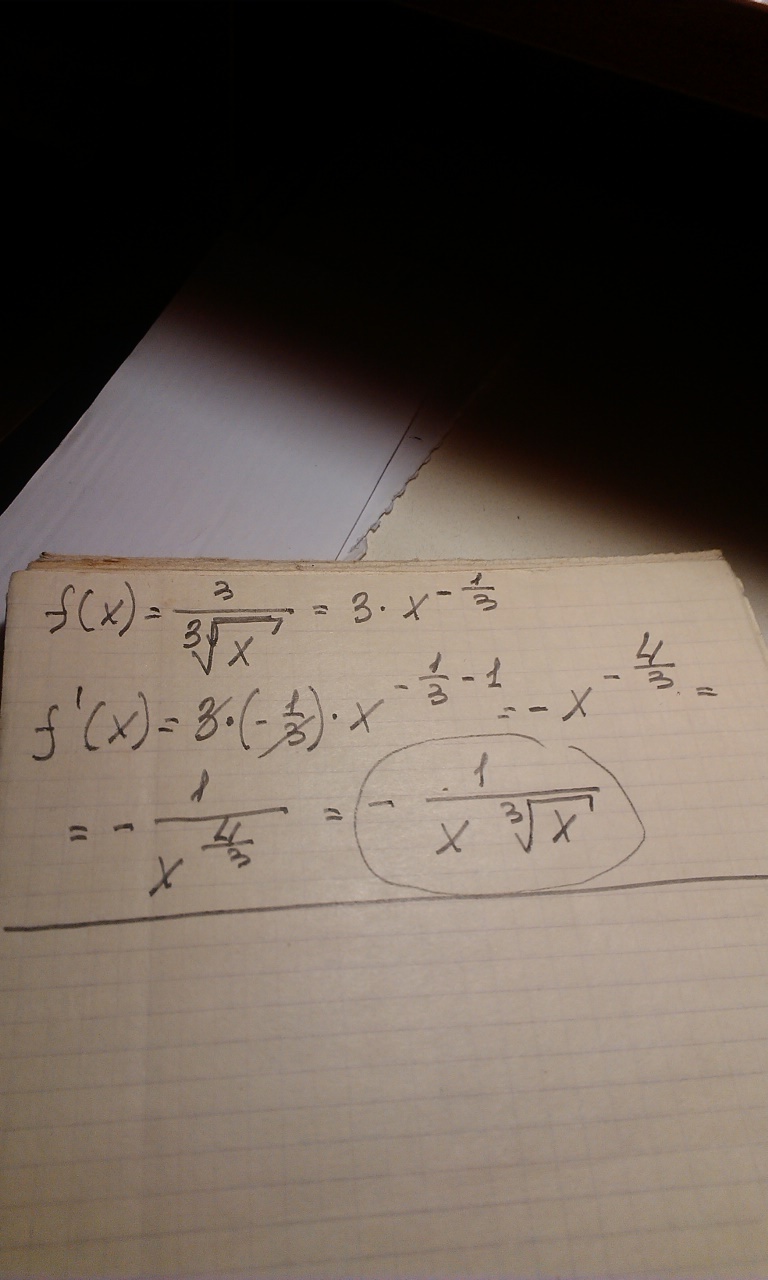 f(x) = 3/∛x = 3 · x^(-1/3)
f'(x) = 3 · (-1/3) · x^(-1/3 - 1) = - x^(-4/3) =
= - 1/x^(4/3) = - 1/(x ∛x)